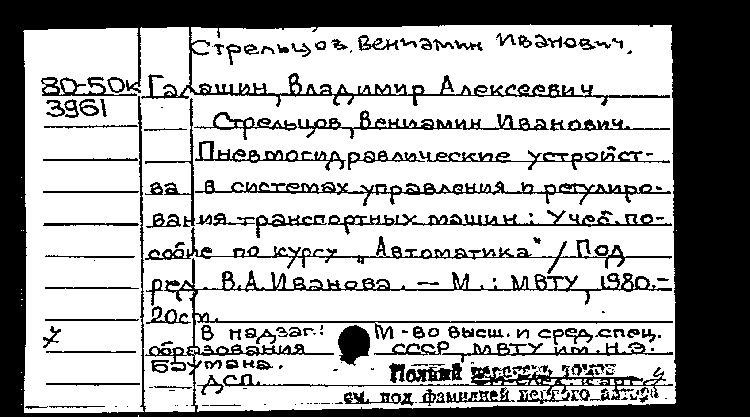 Стрельцов, Вениамин Иванович.
80-50к Галашин, Владимир Алексеевич,
3961
Стрельцов, Вениамин Иванович.
Пневмогидравлические устройст-
ва в системах управления и регулиро-
вания транспортных машин : Учеб. по-
собие по курсу „Автоматика“ / Под
ред. В.А. Иванова. — М. : МВТУ, 1980.-
20см.
В надзаг.: М-во высш. и сред. спец.
образования СССР, МВТУ им. Н.Э.
Баумана.
ДСП. Полный
см. под фамилией первого автора